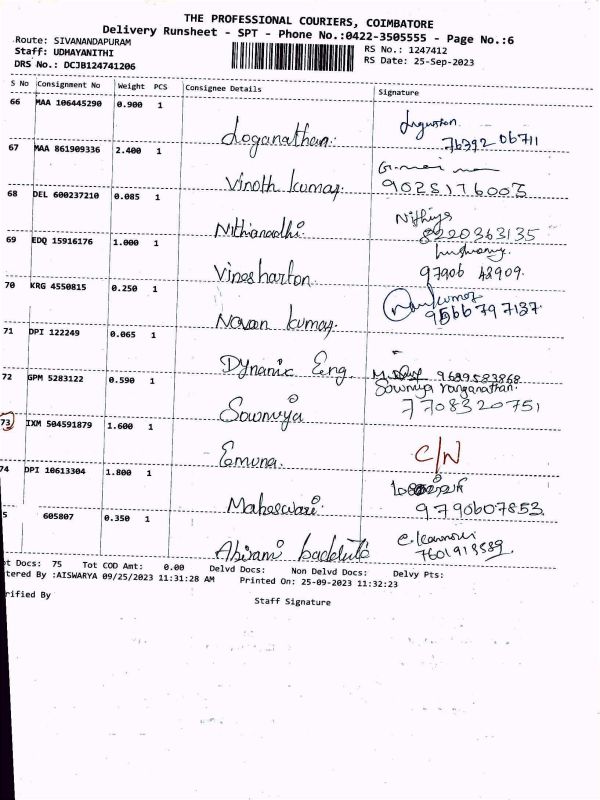 THE PROFESSIONAL COURIERS, COIMBATORE
Delivery Runsheet - SPT - Phone No.:0422-3505555 - Page No.:6
Route: SIVANANDAPURAM
RS No.: 1247412
Staff: UDHAYANITHI
RS Date: 25-Sep-2023
DRS No.: DCJB124741206
S No Consignment No Weight PCS Consignee Details Signature
66 MAA 106445290 0.900 1
Loganathan.
76392 06711
67 MAA 861909336 2.400 1
Vinoth kumar.
9025176003
68 DEL 600237210 0.085 1
Nithiya
Nithianadhi
8220363135
69 EDQ 15916176 1.000 1
Vinesharton
97906 48909.
70 KRG 4550815 0.250 1
Navan kumar.
9566797137.
71 DPI 122249 0.065 1
Dynamic Eng. 9629583868
72 GPM 5283122 0.590 1
Sowmiya Ranganathan.
Sowmiya
7708320751
73 IXM 504591879 1.600 1
Emuna.
C/N
74 DPI 10613304 1.800 1
Maheswari.
9790607853
5 605807 0.350 1
Abirami
7601913589.
ot Docs: 75 Tot COD Amt: 0.00 Delvd Docs: Non Delvd Docs: Delvy Pts:
tered By :AISWARYA 09/25/2023 11:31:28 AM Printed On: 25-09-2023 11:32:23
rified By
Staff Signature